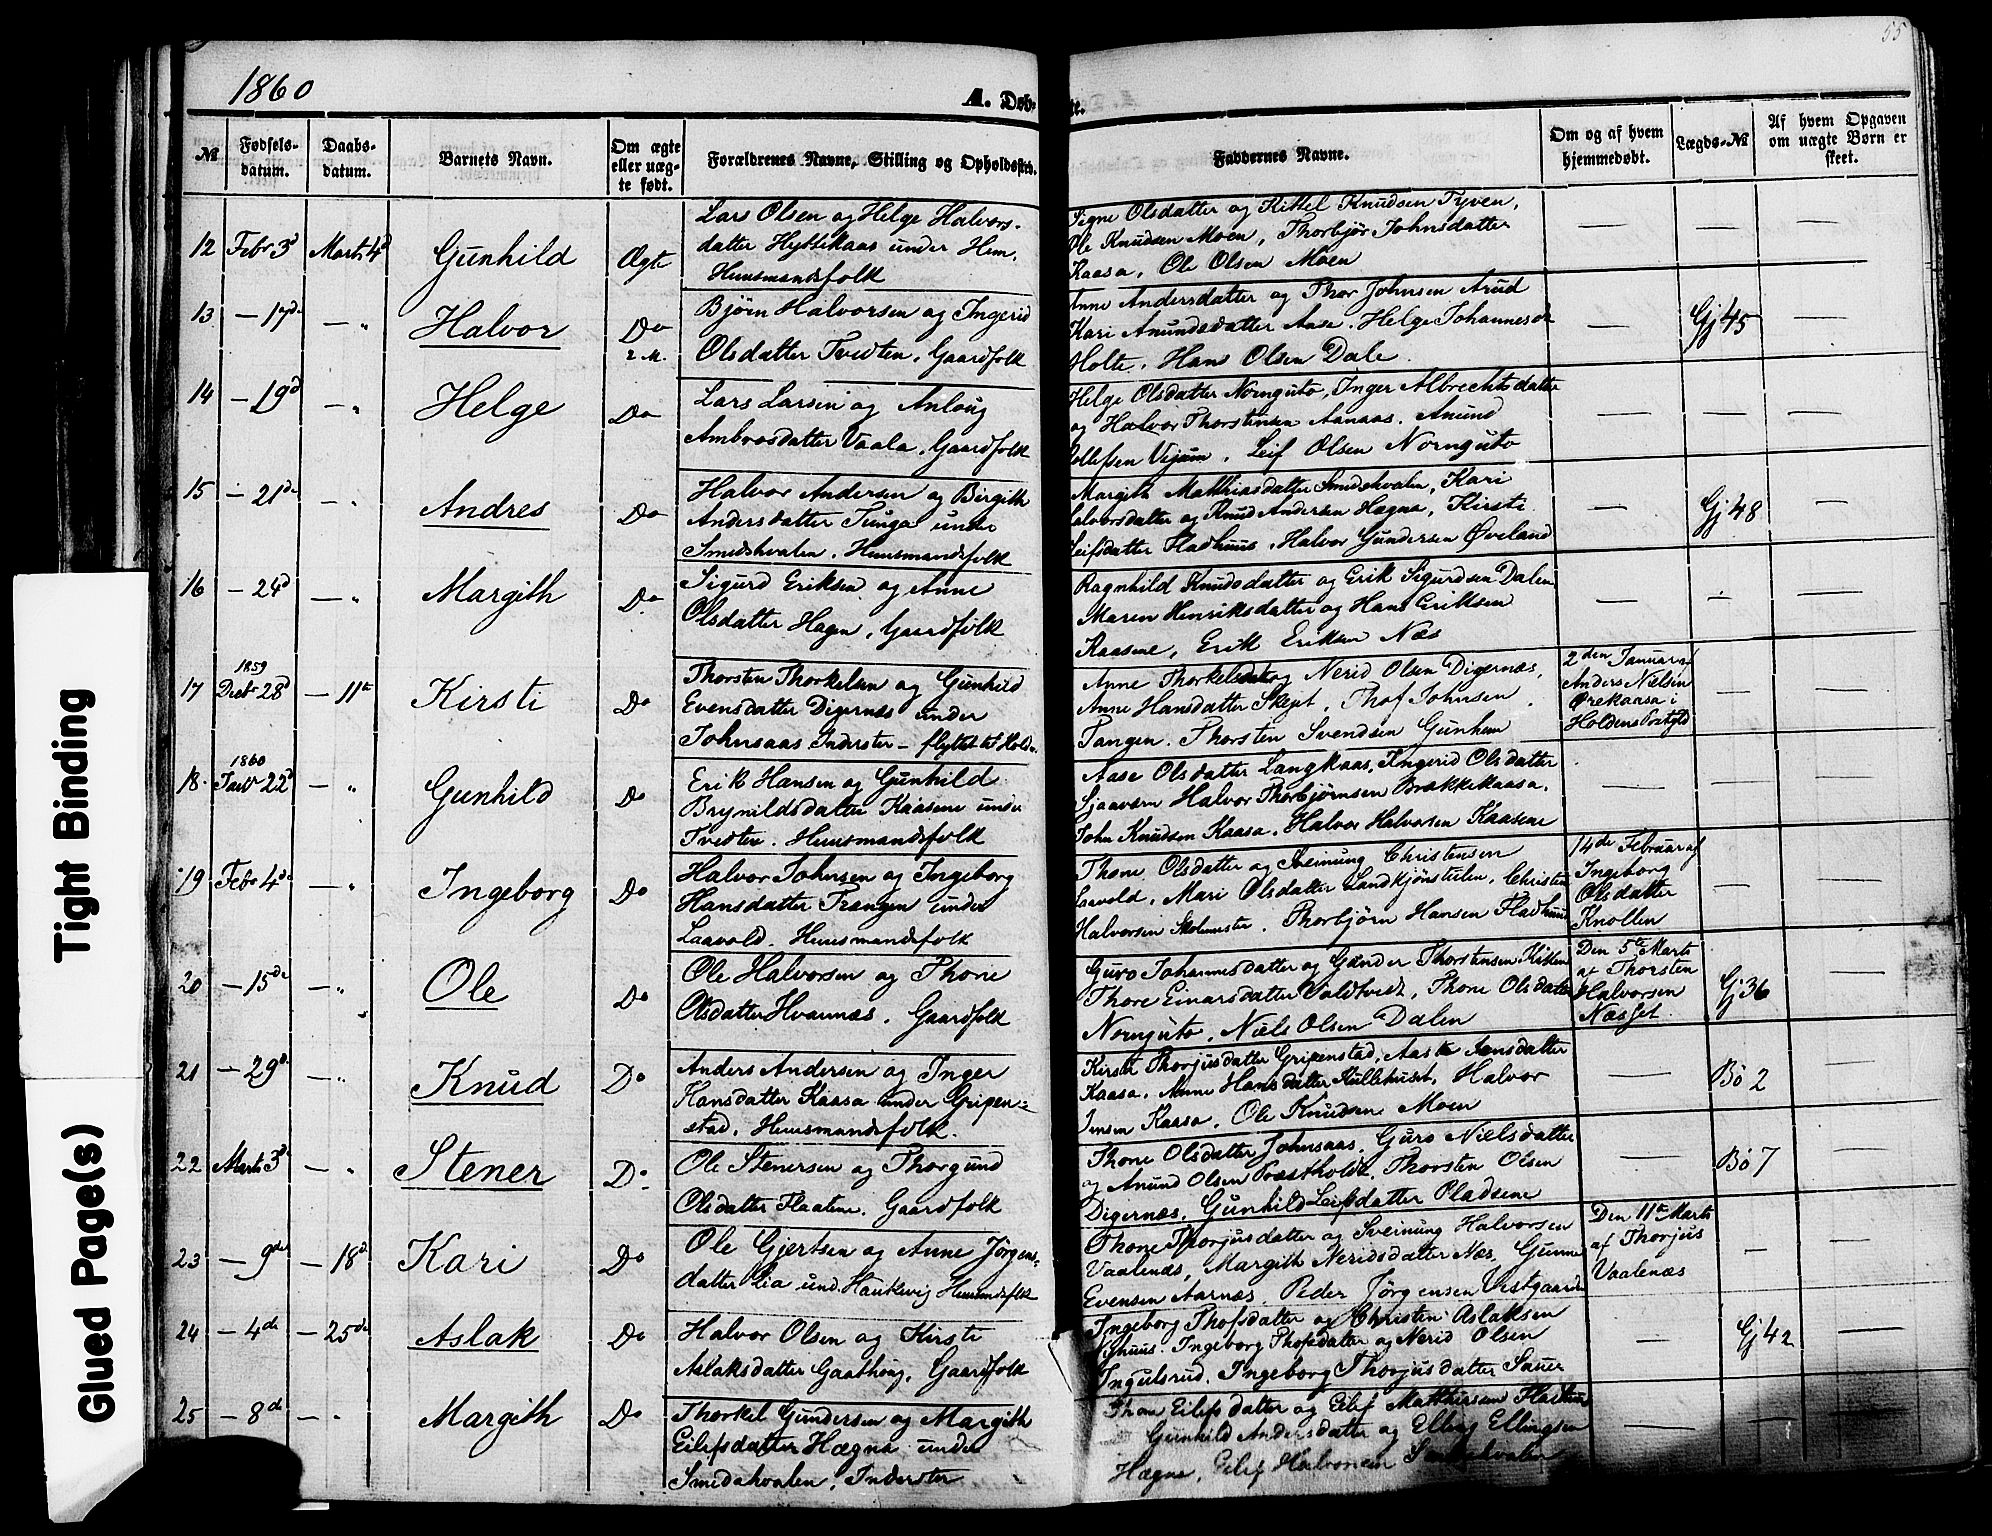 55
1860
A. Døbte.
№
Fødsels-datum.
Daabs-datum.
Barnets Navn.
Om ægte eller uægte født.
Forældrenes Navne, Stilling og Opholdssted.
Faddernes Navne.
Om og af hvem hjemmedøbt.
Lægds-№
Af hvem Opgaven om uægte Børn er skeet.
12 Febr 3d Marts 4d Gunhild Ægte
Lars Olsen og Helge Halvors-
datter Hyttekaas under Hem.
Huusmandsfolk
Signe Olsdatter og Kittel Knudsen Tyven,
Ole Knudsen Moen, Thorbjør Johnsdatter
Kaasa, Ole Olsen Moen
— — —
13 — 17de — " Halvor Do
2 M.
Bjørn Halvorsen og Ingerid
Olsdatter Tvedten, Gaardfolk
Anne Andersdatter og Thor Johnsen Arud
Kari Anundsdatter Aase. Helge Johannesdr
Holte. Hans Olsen Dale.
— Gj 45 —
14 — 19d — " Helge Do
Lars Larsen og Anlaug
Ambrosdatter Vaala, Gaardfolk
Helge Olsdatter Nornguto, Inger Albrechtsdatter
og Halvor Thorstensen Aanaas. Anund
Vejum, Leif Olsen Nornguto
— — —
15 — 21de — " Andres Do
Halvor Andersen og Birgith
Andersdatter Tunga under
Smedshvalen. Huusmandsfolk
Margith Matthiasdatter Smedshvalen, Kari
Halvorsdatter og Knud Andersen Hægna, Kirsti
Leifsdatter Fladhuus, Halvor Gundersen Øveland
— Gj 48 —
16 — 24d — " Margith Do
Sigurd Eriksen og Anne
Olsdatter Hagen, Gaardfolk
Ragnhild Knudsdatter og Erik Sigurdsen Dalen
Maren Henriksdatter og Hans Eriksen
Kaasene, Erik Eriksen Næs
— — —
1859
17 Decbr 28d — 11te Kirsti Do
Thorsten Thorkelsen og Gunhild
Evensdatter Digernæs under
Johnsaas Inderster — flyttet til Holden
Anne Thorkelsdat og Nerid Olsen Digernæs,
Anne Hansdatter Skejet, Thof Johnsen
Tangen. Thorsten Svendsen Gunhem
2den Januar af
Anders Nielsen
Ørekaasa i
Holdens Prstgld
— —
1860
18. Janr 22d — " Gunhild Do
Erik Hansen og Gunhild
Brynildsdatter Kaasene under
Tvedten. Huusmandsfolk
Aase Olsdatter Langkaas, Ingerid Olsdatter
Sjaavorn Halvor Thorbjørnsen Brækkekaasa.
John Knudsen Kaasa, Halvor Halvorsen Kaasene
— — —
19 Febr 4de — " Ingeborg Do
Halvor Johnsen og Ingeborg
Hansdatter Trangen under
Laavold. Huusmandsfolk
Thone Olsdatter og Sveinung Christensen
Laavold, Mari Olsdatter Landkjønsteilen, Christen
Halvorsen Skolemster. Thorbjørn Hansen Fladhuus
14de Februar af
Ingeborg
Olsdatter
Knollen
— —
20 — 15de — " Ole Do
Ole Halvorsen og Thone
Olsdatter Hvannæs. Gaardfolk
Guro Johannesdatter og Gunder Thorstensen
Thore Einarsdatter Valdtvedt, Thone Olsdatter
Nornguto, Niels Olsen Dalen
Den 5te Marts
af Thorsten
Halvorsen
Næsset
Gj 36 —
21 — 29d — " Knud Do
Anders Andersen og Inger
Hansdatter Kaasa under Gripen-
stad, Huusmandsfolk.
Kirsti Thorjusdatter Gripenstad, Aaste Jensdatter
Kaasa, Anne Hansdatter Kullehuset, Halvor
Jensen Kaasa, Ole Knudsen Moen
— Bö 2 —
22 Marts 3d — " Stener Do
Ole Stenersen og Thorgund
Olsdatter Flaatene. Gaardfolk
Thone Olsdatter Johnsaas, Guro Nielsdatter
og Anund Olsen Præstholdt. Thorsten Olsen
Digernæs, Gunhild Leifsdatter Pladsene
— Bö 7 —
23 — 9de — 18d Kari Do
Ole Gjertsen og Anne Jörgens-
datter Lia und. Haukevig
Thone Thorjusdatter og Sveinung Halvorsen
Vaalenæs, Margith Neridsdatter Næs, Gunne
Evensen Aarnæs, Peder Jörgensen Vestgaarden
Den 11te Marts
af Thorjus
Vaalenæs
— —
24 — 4de — 25de Aslak Do
Halvor Olsen og Kirsti
Aslaksdatter Gaathoug, Gaardfolk
Ingeborg Thofsdatter og Christen Aslaksen
Nyhuus. Ingeborg Thofsdatter og Nerid Olsen
Ingulsrud. Ingeborg Thorjusdatter Sauer
— Gj 42 —
25 — 8de — " Margith Do
Thorkel Gundersen og Margith
Eilefsdatter Hægna under
Smedshvalen, Inderster
Thone Eilefsdatter og Eilef Matthiesen Fladhuus
Gunhild Andersdatter og Elling Ellingsen
Hægna, Eilef Halvorsen Smedshvalen
— — —
Tight Binding
Glued Page(s)